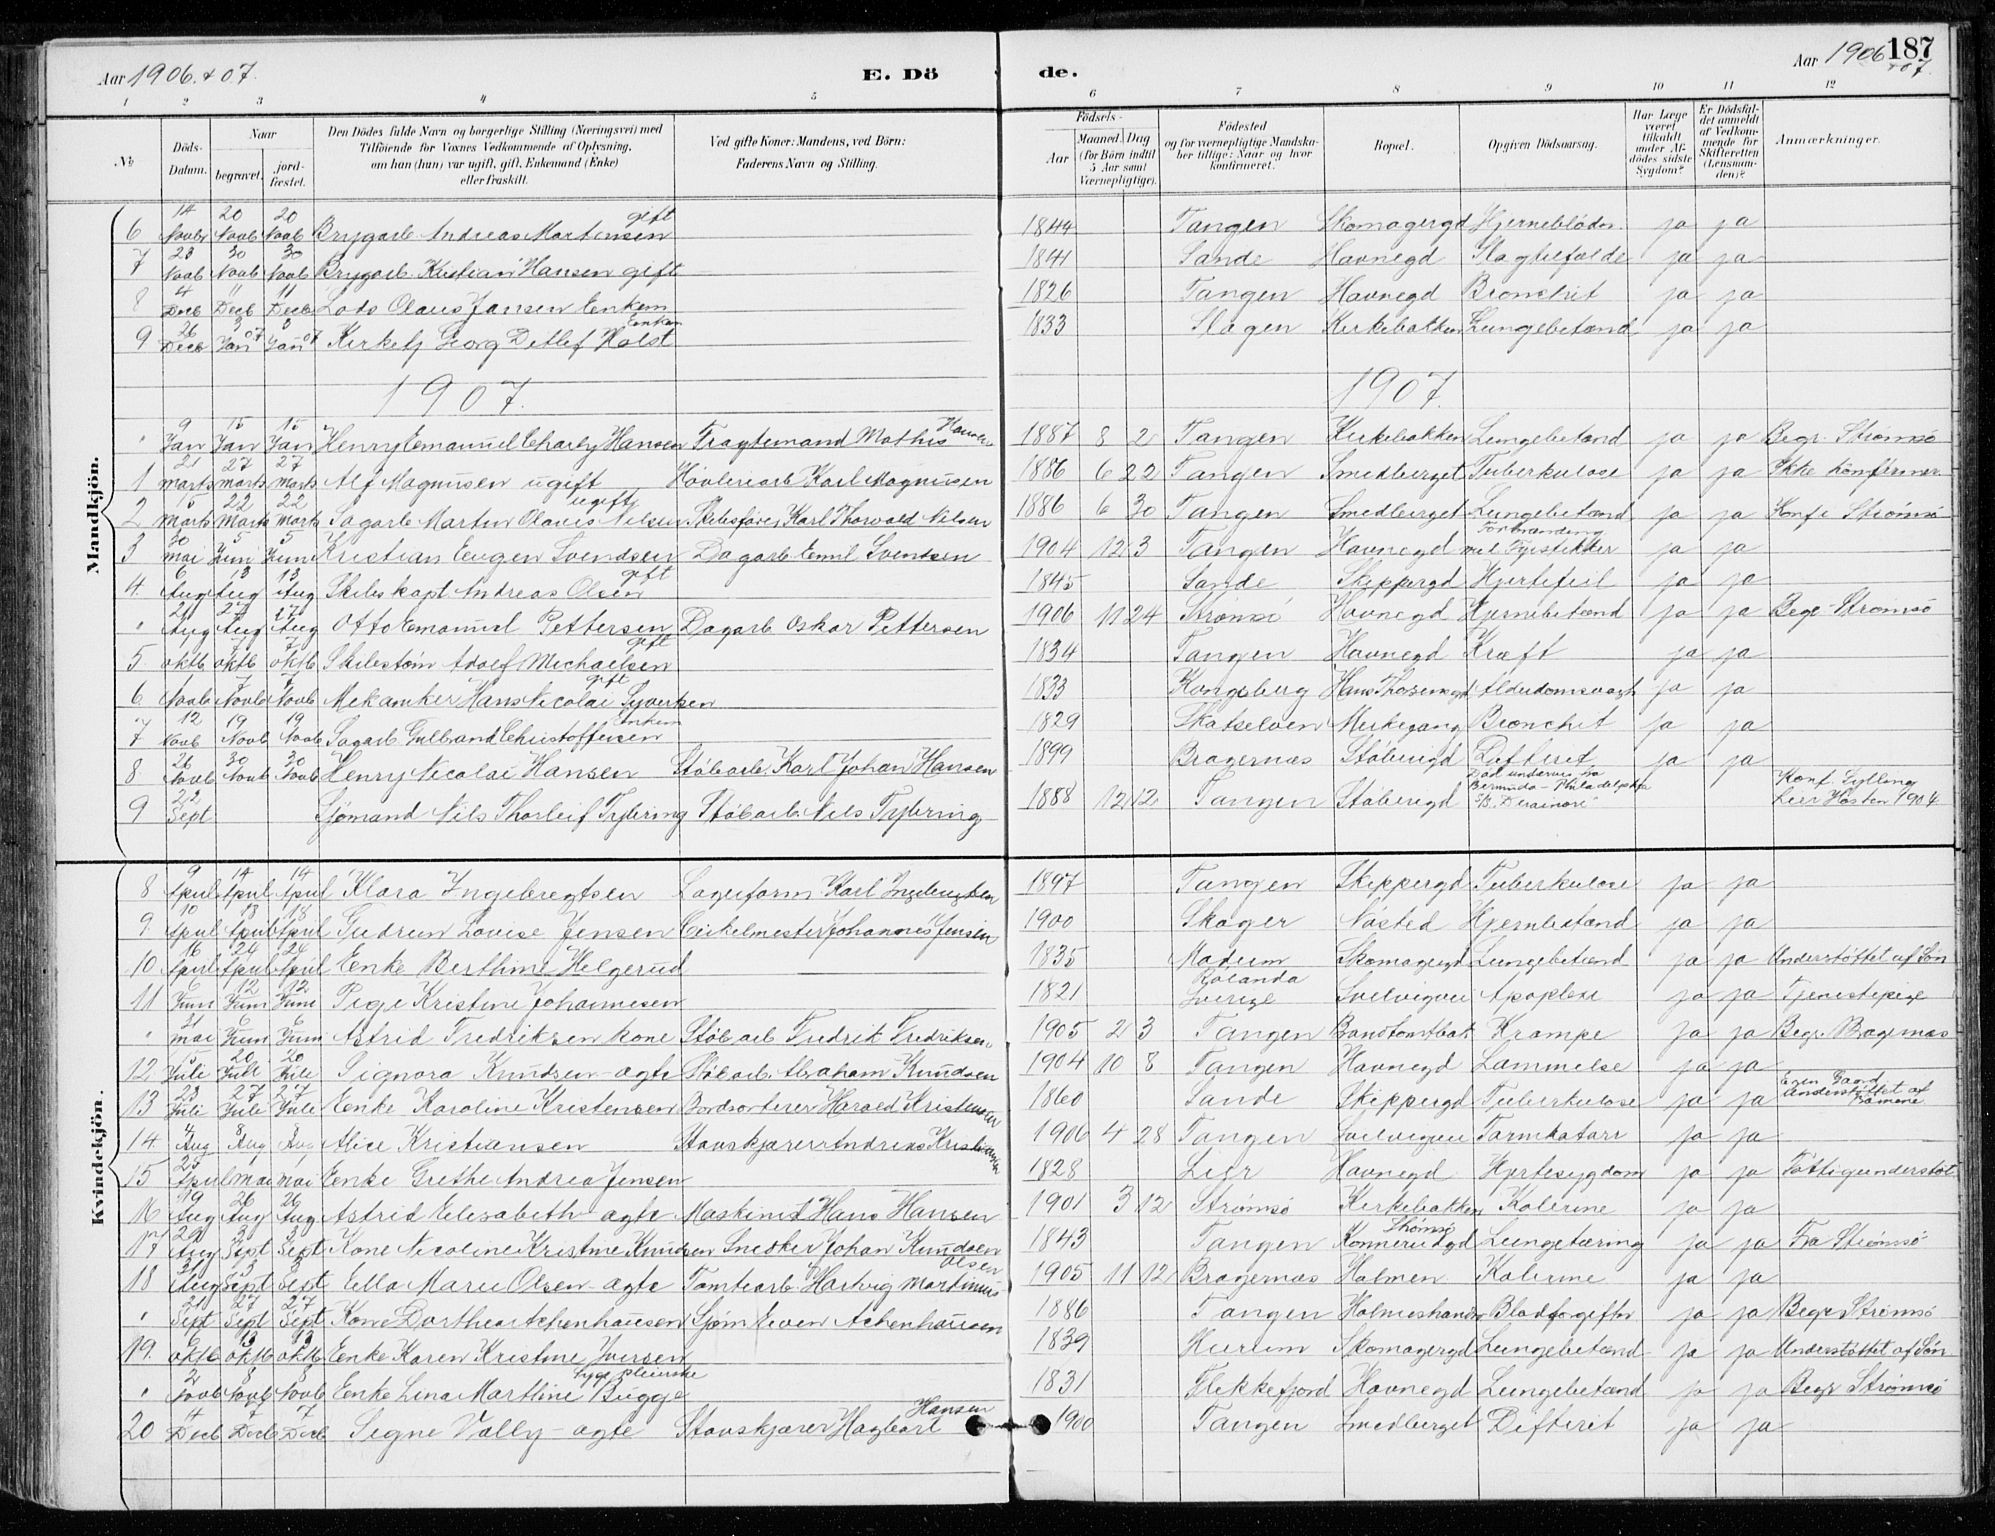 Aar 1906 & 07.
E. Döde.
Aar 1906 & 07.
187
1 2 3 4 5 6 7 8 9 10 11 12
No
Döds-Datum.
Naar begravet. jordfæstet.
Den Dödes fulde Navn og borgerlige Stilling (Næringsvei) med Tilföiende for Voxnes Vedkommende af Oplysning, om han (hun) var ugift, gift, Enkemand (Enke) eller fraskilt.
Ved gifte Koner: Mandens, ved Börn: Faderens Navn og Stilling.
Födsels- Aar Maaned. Dag (for Börn indtil 5 Aar samt Værnepligtige).
Födested og for værnepligtige Mandskaber tillige: Naar og hvor konfirmeret.
Bopæl.
Opgiven Dödsaarsag.
Har Læge været tilkaldt under Afdödes sidste Sygdom?
Er Dödsfaldet anmeldt af Vedkommende for Skifteretten (Lensmanden)?
Anmærkninger.
Mandkjön.
6 14 Novb 20 Novb 20 Novb Brygarb. Andreas Martensen gift 1844 Tangen Skomagergd Hjerneblödn. ja ja
7 23 Novb 30 Novb 30 Novb Brygarb. Kristian Hansen gift 1841 Sande Havnegd Slagtilfælde ja ja
8 4 Decb 11 Decb 11 Decb Lods Olaus Jansen Enkem 1826 Tangen Havnegd Bronchit ja ja
9 26 Decb 3 Jan 07 3 Jan 07 Kirketj Georg Ditlef Holst Enkem 1833 Slagen Kirkebakken Lungebetænd ja ja
1907. 1907.
" 9 Jan 15 Jan 15 Jan Henry Emanuel Charly Hansen Fragtemand Mathis Hansen 1887 8 2 Tangen Kirkebakken Lungebetænd ja ja Begr. Strömsö
1 21 marts 27 marts 27 marts Alf Magnusen ugift Hövleriarb Karl Magnusen 1886 6 22 Tangen Smedberget Tuberkulose ja ja Ikke konfirmer
2 5 Marts 22 Marts 22 Marts Sagarb Martin Olavis Nilsen ugift Skibsförer Karl Thorvald Nilsen 1886 6 30 Tangen Smedberget Lungebetænd ja ja Konf i Strömsö
3 30 mai 5 Juni 5 Juni Kristian Eugen Svendsen Dagarb Emil Svendsen 1904 12 3 Tangen Havnegd Forbrænding mel Fyrstikker ja ja
4. 6 Aug 13 Aug 13 Aug Skibskapt. Andreas Olsen gift 1845 Sande Skippergd Hjertefeil ja ja
" 21 Aug 27 Aug 27 Aug Otto Emanuel Pettersen Dagarb Oskar Pettersen 1906 11 24 Strömsö Havnegd Hjernebetænd ja ja Begr Strömsö
5 oktb 7 oktb 7 oktb Skibstöm Adolf Michaelsen gift 1834 Tangen Havnegd Kræft ja ja
6 Novb 7 Novb 7 Novb Mekaniker Hans Nicolai Syvertsen gift 1833 Kongsberg Hans Thosensgd Alderdomsvagh ja ja
7 12 Novb 19 Novb 19 Novb Sagarb Gulbrand Christoffersen Enkem 1829 Skotselven Mærkegang Bronchit ja ja
8 26 Novb 30 Novb 30 Novb Henry Nicolai Hansen Stöbarb. Karl Johan Hansen 1899 Bragernæs Stöberigd Difterit ja ja
9 22 Sept Sjömand Nils Thorleif Trybring Stöbarb. Nils Trybring 1888 12 12 Tangen Stöberigd Död underveis fra Bermuda-Philadelphia Konf. Sylling Lier Hösten 1904
Kvindekjön.
8 9 April 14 April 14 April Klara Ingebregtsen Lagerform Karl Ingebregtsen 1897 Tangen Skippergd Tuberkulose ja ja
9. 10 April 18 April 18 April Gudrun Lovise Jensen Cirkelmester Johannes Jensen 1900 Skoger Nösted Hjernebetænd ja ja
10 16 April 24 April 24 April Enke Berthine Helgerud 1835 Modum Skomagergd Lungebetænd ja ja Understöttet af Sön
11 6 Juni 12 Juni 12 Juni Pige Kristine Johannesen 1821 Rölanda Sverige Svelvigvei Apoplexi ja ja Tjenestepige
" 31 mai 6 Juni 6 Juni Astrid Fredriksen Stöbarb Fredrik Fredriksen 1905 2 3 Tangen Krampe ja ja Begr. Bragernæs
12 15 Juli 20 Juli 20 Juli Signora Knudsen - ægte Stöbarb. Abraham Knudsen 1904 10 8 Tangen Havnegd Lammelse ja ja
13 23 Juli 27 Juli 27 Juli Enke Karoline Kristensen Bordsorterer Harald Kristensen 1860 Sande Skippergd Tuberkulose ja ja Egen Gaard Understöttet af Börnene
14 4 Aug 8 Aug 8 Aug Alice Kristiansen Stavskjærer Andreas Kristiansen 1906 4 28 Tangen Svelvigvei Tarmkatarr ja ja
15 25 April mai 1 mai Enke Grethe Andrea Jensen 1828 Lier Havnegd Hjertesygdom ja ja Fattigunderstöt
16 19 Aug 26 Aug 26 Aug Astrid Elisabeth ægte Maskinist Hans Hansen 1901 3 12 Strömsö Kirkebakken Kolerine ja ja
17 29 Aug 3 Sept 3 Sept Kone Nicoline Kristine Knudsen Snedker Johan Knudsen 1843 Tangen Strömsö Konnerudgd Lungetæring ja ja Fra Strömsö
18 31 Aug 3 Sept 3 Sept Ella Marie Olsen - ægte Tomtearb Hartvig Martinius Olsen 1905 11 12 Bragernæs Holmen Kolerine ja ja
" 21 Sept 27 Sept 27 Sept Kone Dorthea Achenhausen Sjöm Even Achenhausen 1886 Tangen Blodforgiftn ja ja Begr Strömsö
19. 6 oktb 13 oktb 13 oktb Enke Karen Kristine Iversen 1839 Hurum Skomagergd Lungebetænd ja ja Understöttet af Sön
" 2 Novb 8 Novb 8 Novb Enke Lina Martine Bugge Sygepleierske 1831 Flekkefjord Havnegd Lungebetænd ja ja Begr Strömsö
20 4 Decb 7 Decb 7 Decb Signe Vally - ægte Stavskjærer Hagbart Hansen 1900 Tangen Smedberget Difterit ja ja